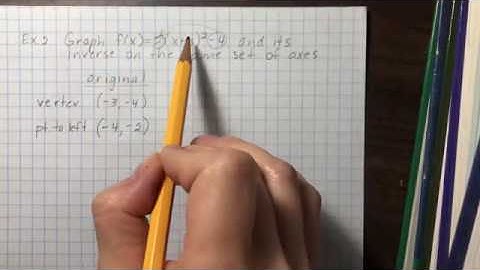 Ex.2 Graph f(x)= (x+ )²-4 and its
inverse on the same set of axes
original
vertex (-3,-4)
pt to left (-4,-2)